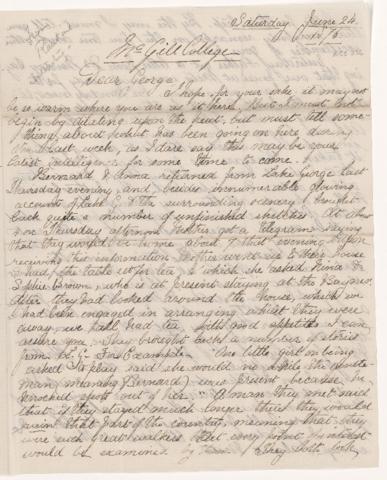 Saturday June 24
McGill College
Dear George
I hope for your sake it may not
be so warm where you are as it is here, but I must not
begin by dilating upon the heat, but must tell some-
thing about what has been going on here during
the last week, as I dare say this may be your
latest intelligence for some time to come.
Bernard & Anna returned from Lake George last
Thursday evening, and, beside innumerable glowing
accounts of lake & the surrounding scenery brought
back quite a number of unfinished sketches. At about
on Thursday afternoon Mother got a telegram saying
that they would be home about 7 that evening. Upon
receiving this information Mother went up to their house
& had the table set for tea, to which she asked Nina &
Brown, who is at present staying at the Baynes.
After they had looked around the house, which we
had been engaged in arranging whilst they were
away, we all had tea with good appetites I can
assure you. They brought back a number of stories
from L. G. For Example - One little girl on being
asked to play said she would no while the white
man meaning (Bernard) were present because he
knocked spots out of her. A man they met said
that if they stayed much longer there they would
ruin that part of the country, meaning that they
were such great walkers that every point of interest
would be examined by them. They both look